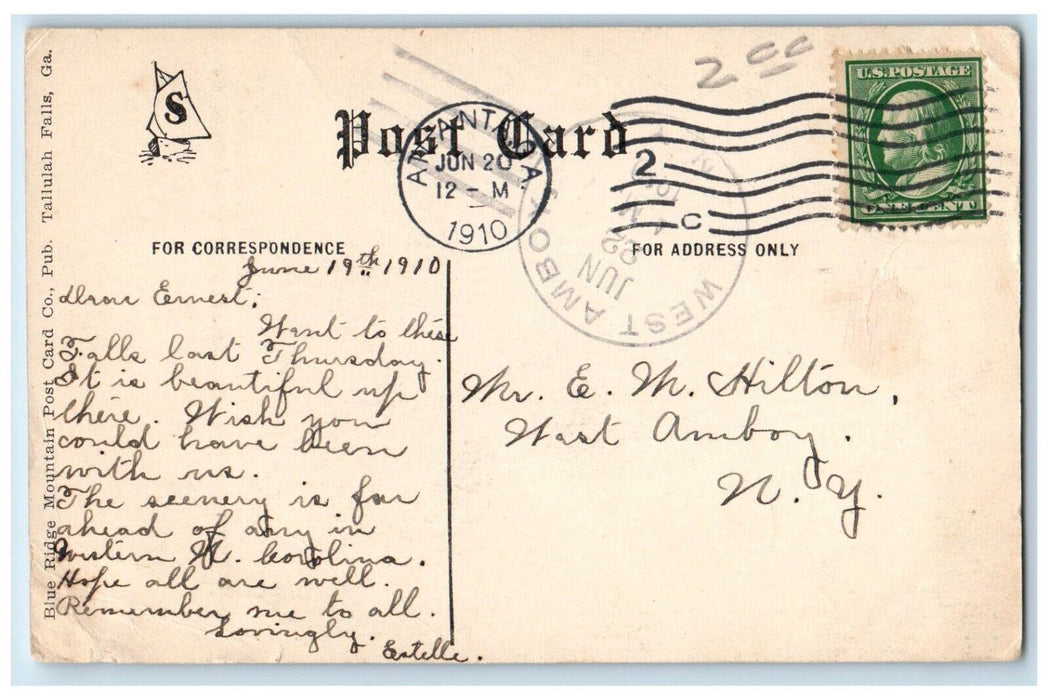 Blue Ridge Mountain Post Card Co., Pub. Tallulah Falls, Ga.
S
Post Card
2 cc
U.S. POSTAGE
ONE CENT
ATLANTA, GA.
JUN 20
12 - M
1910
2
C
WEST AMBOY, N.Y.
JUN
22
FOR CORRESPONDENCE
FOR ADDRESS ONLY
June 19th 1910
Dear Ernest;
Went to these
Falls last Thursday.
It is beautiful up
there. Wish you
could have been
with us.
The scenery is far
ahead of any in
Western N. Carolina.
Hope all are well.
Remember me to all.
Lovingly.
Estelle.
Mr. E. M. Hilton,
West Amboy.
N. Y.